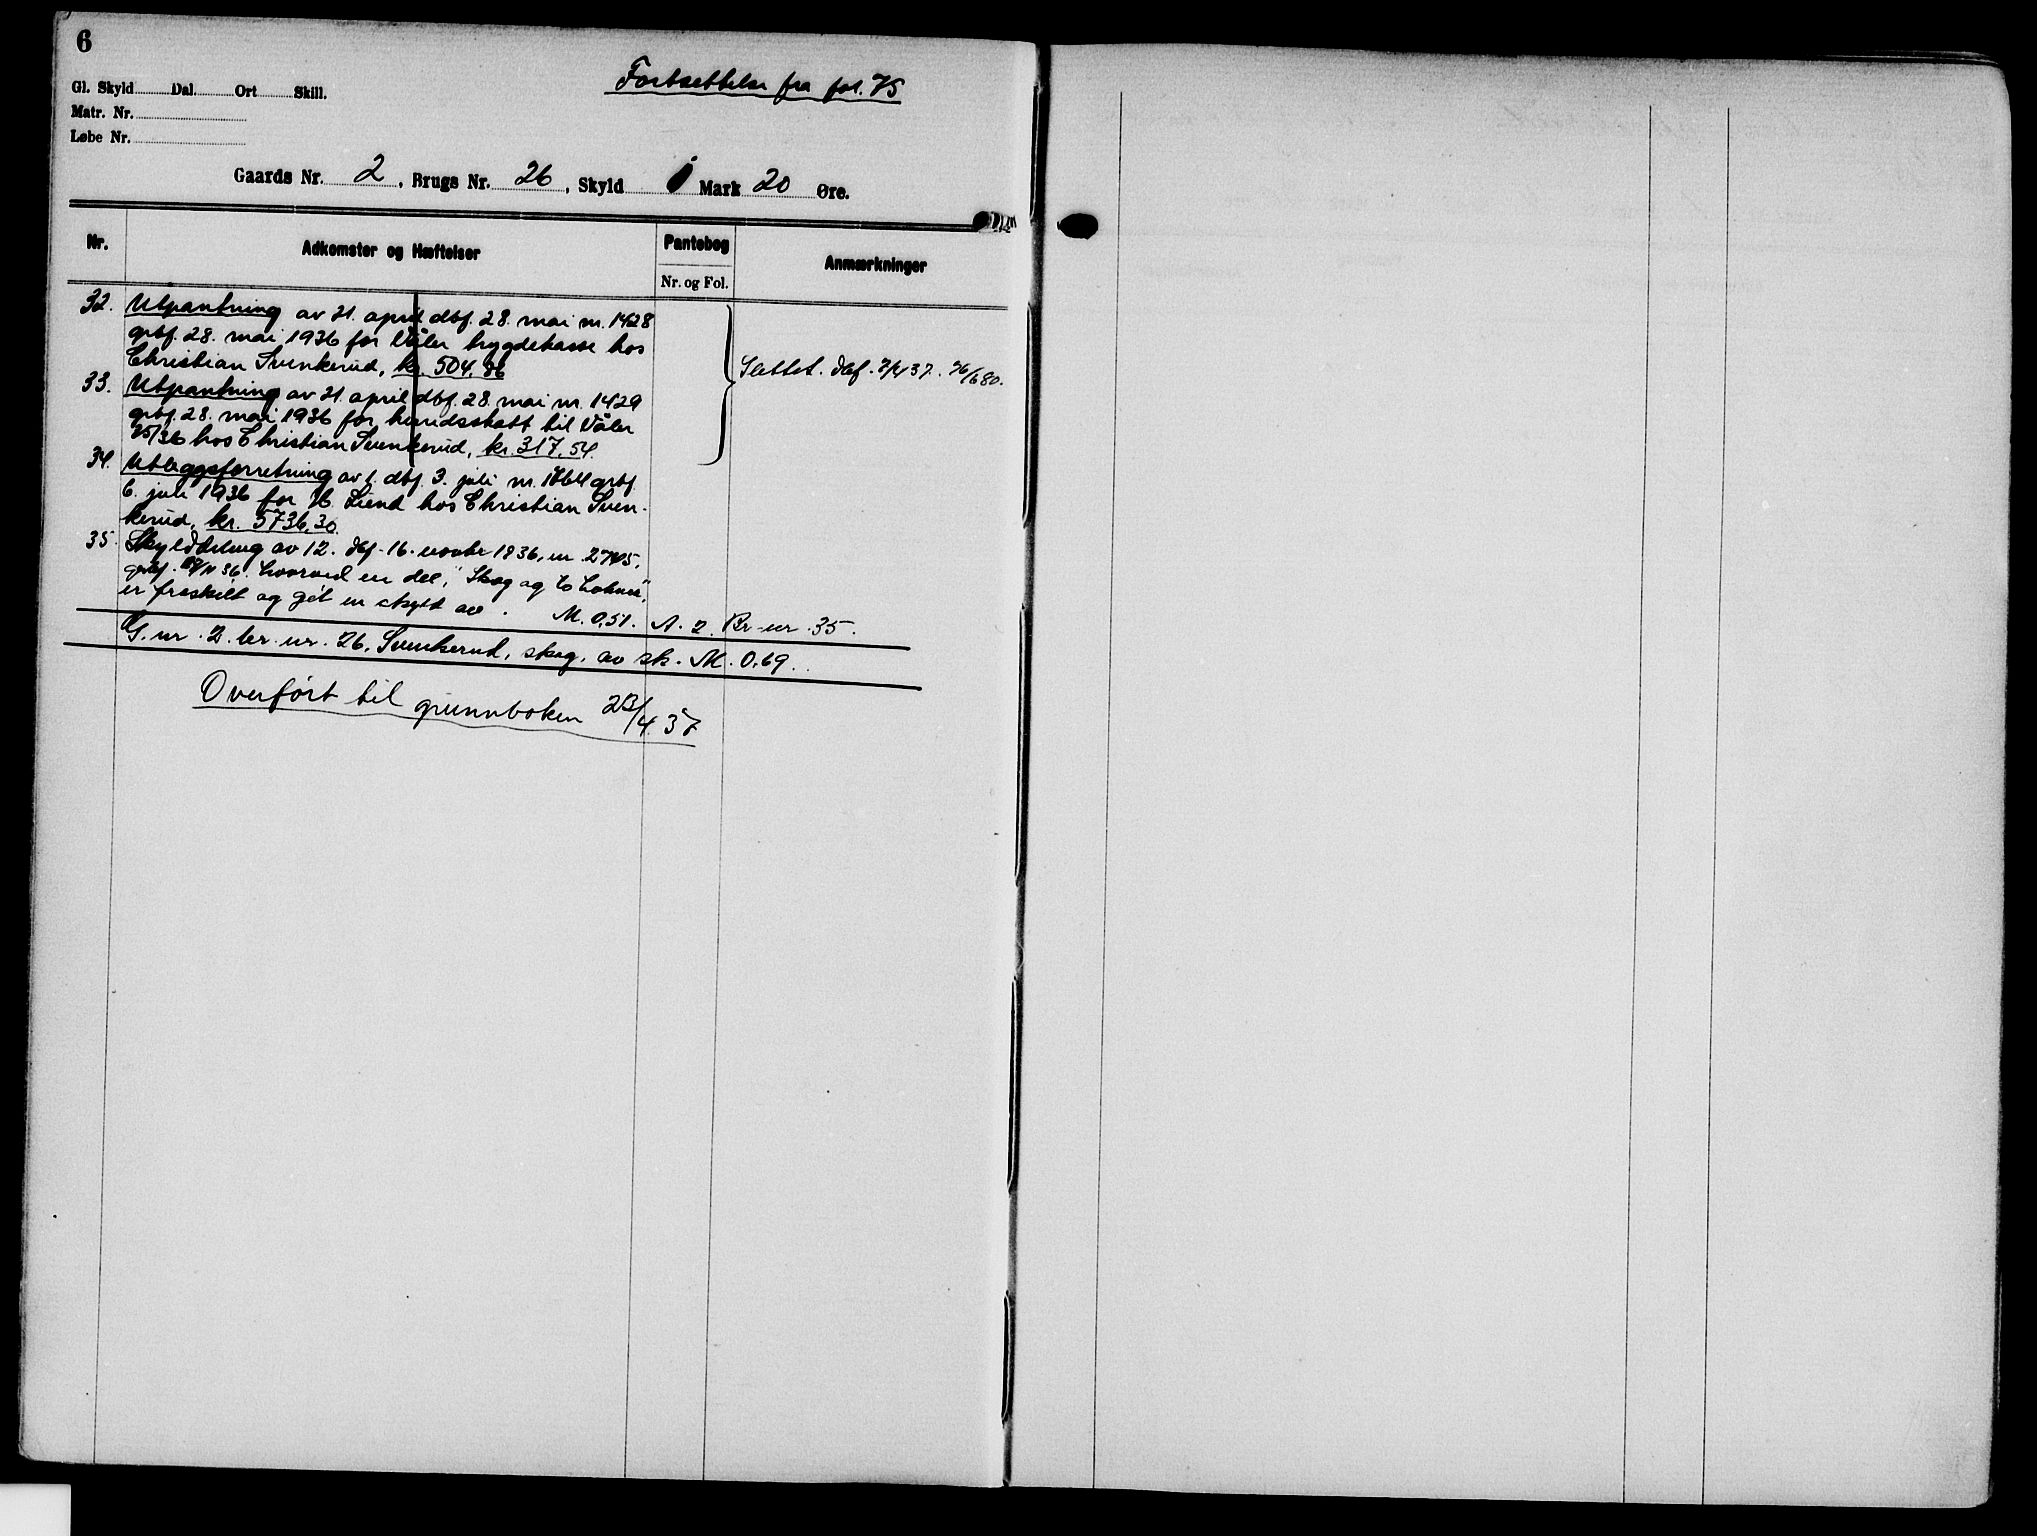 6
Fortsettelse fra fol. 75
Gl. Skyld Dal. Ort Skill.
Matr. Nr.
Løbe Nr.
Gaards Nr. 2, Brugs Nr. 26, Skyld 1 Mark 20 Øre.
Nr. Adkomster og Hæftelser Pantebog Anmærkninger
Nr. og Fol.
32. Utpantning av 21. april dbf. 28. mai nr. 1428
grbf. 28. mai 1936 for Våler bygdekasse hos
Christian Svenkerud, kr. 504,86
Slettet. dbf. 2/4 37. 76/680.
33. Utpantning av 21. april dbf. 28. mai nr. 1429
grbf. 28. mai 1936 for hundsskatt til Våler
35/36 hos Christian Svenkerud, kr. 317,54.
34. Utleggsforretning av 1. dbf. 3. juli nr. 1864 grbf.
6. juli 1936 for H. Liend hos Christian Sven-
kerud, kr. 5736,30
35. Skylddeling av 12. dbf. 16. novbr 1936, nr. 2705,
grbf. /11 36. hvorved en del, "Skog og
er fraskilt og gitt en skyld av. M. 0,51. A. 2. Br-nr. 35.
G. nr. 2. br. nr. 26, Svenkerud, skog, av sk. M. 0.69.
Overført til grunnboken 23/4. 37